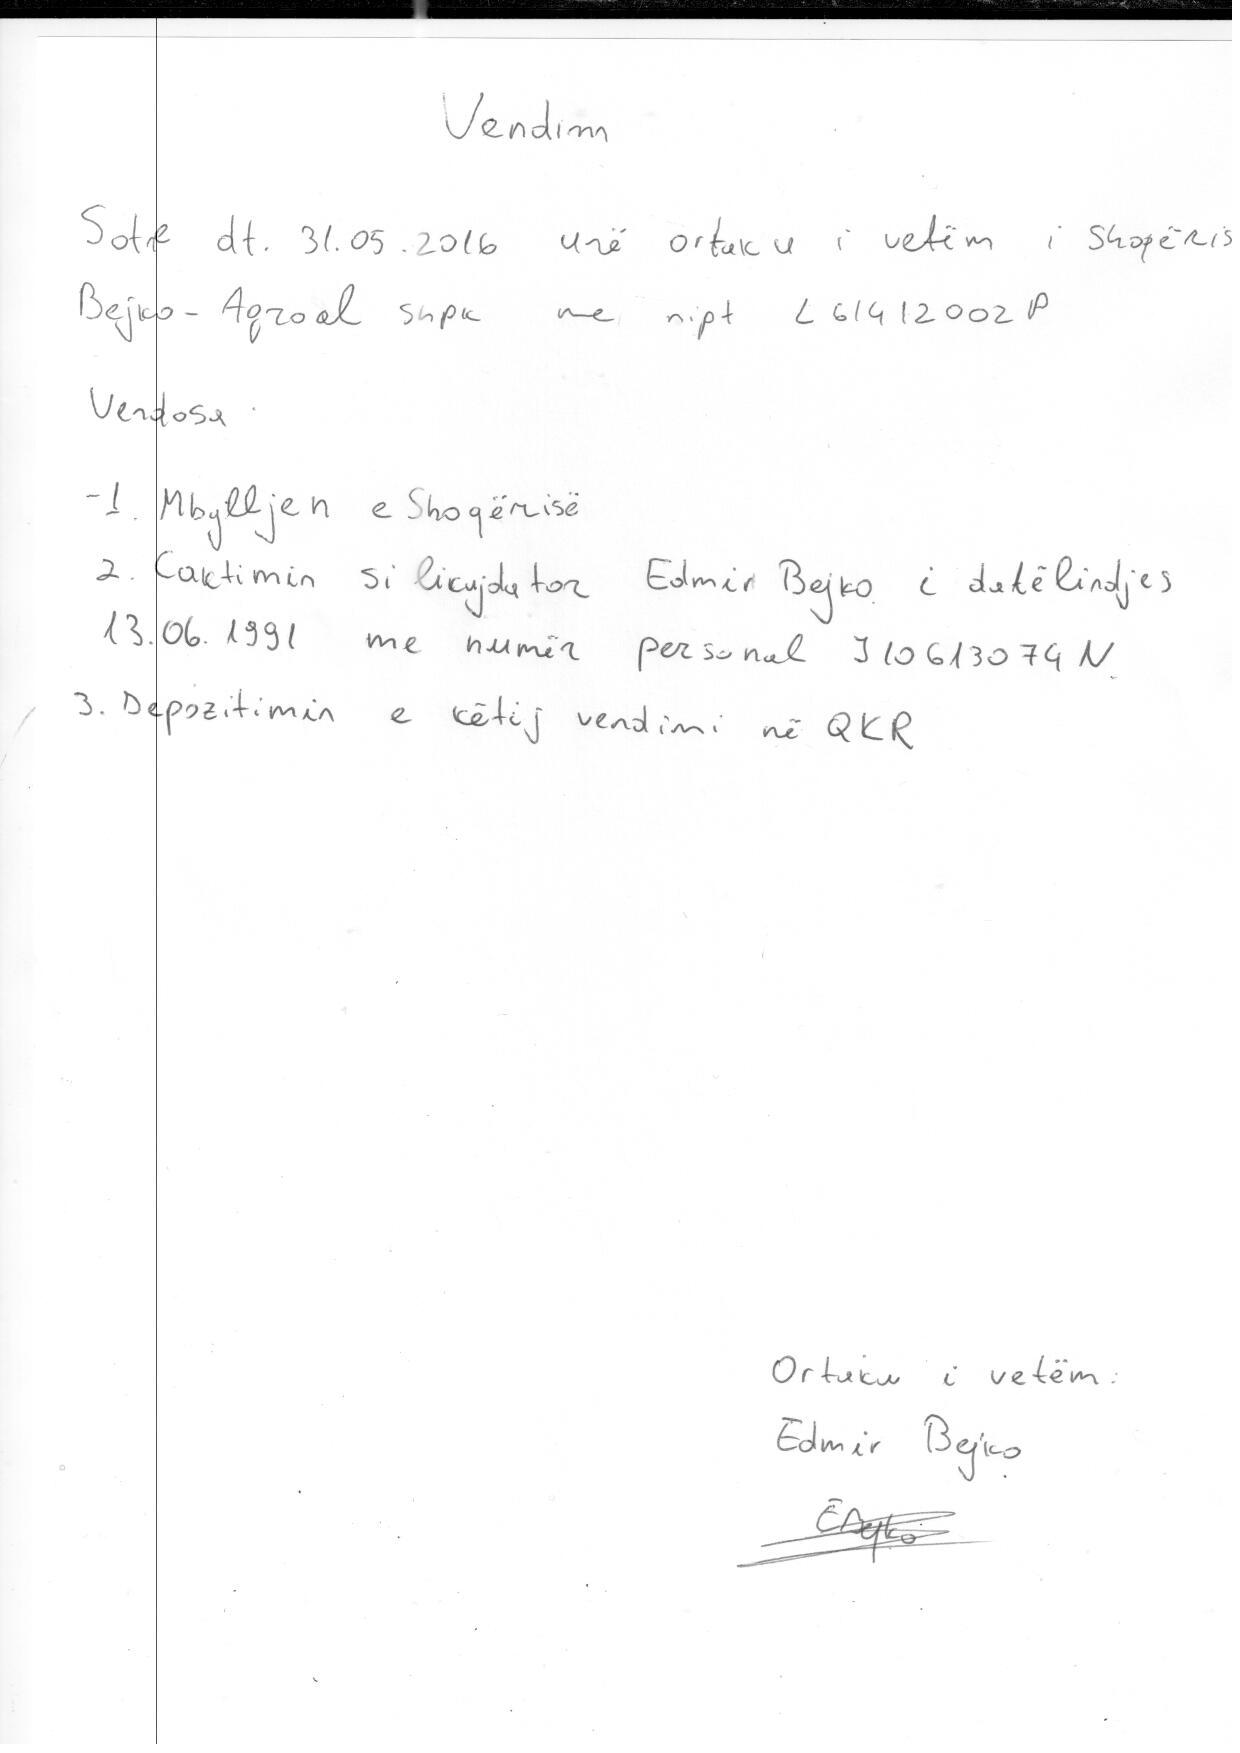 Vendim
Sot e dt. 31.05.2016 unë ortaku i vetëm i Shoqëris
Bejko-Agroal shpk me nipt L61412002P
Vendosa
-1. Mbylljen e Shoqërisë
2. Caktimin si likujdator Edmir Bejko i datëlindjes
13.06.1991 me numër personal J10613074N
3. Depozitimin e këtij vendimi në QKR
Ortaku i vetëm:
Edmir Bejko
EBejko